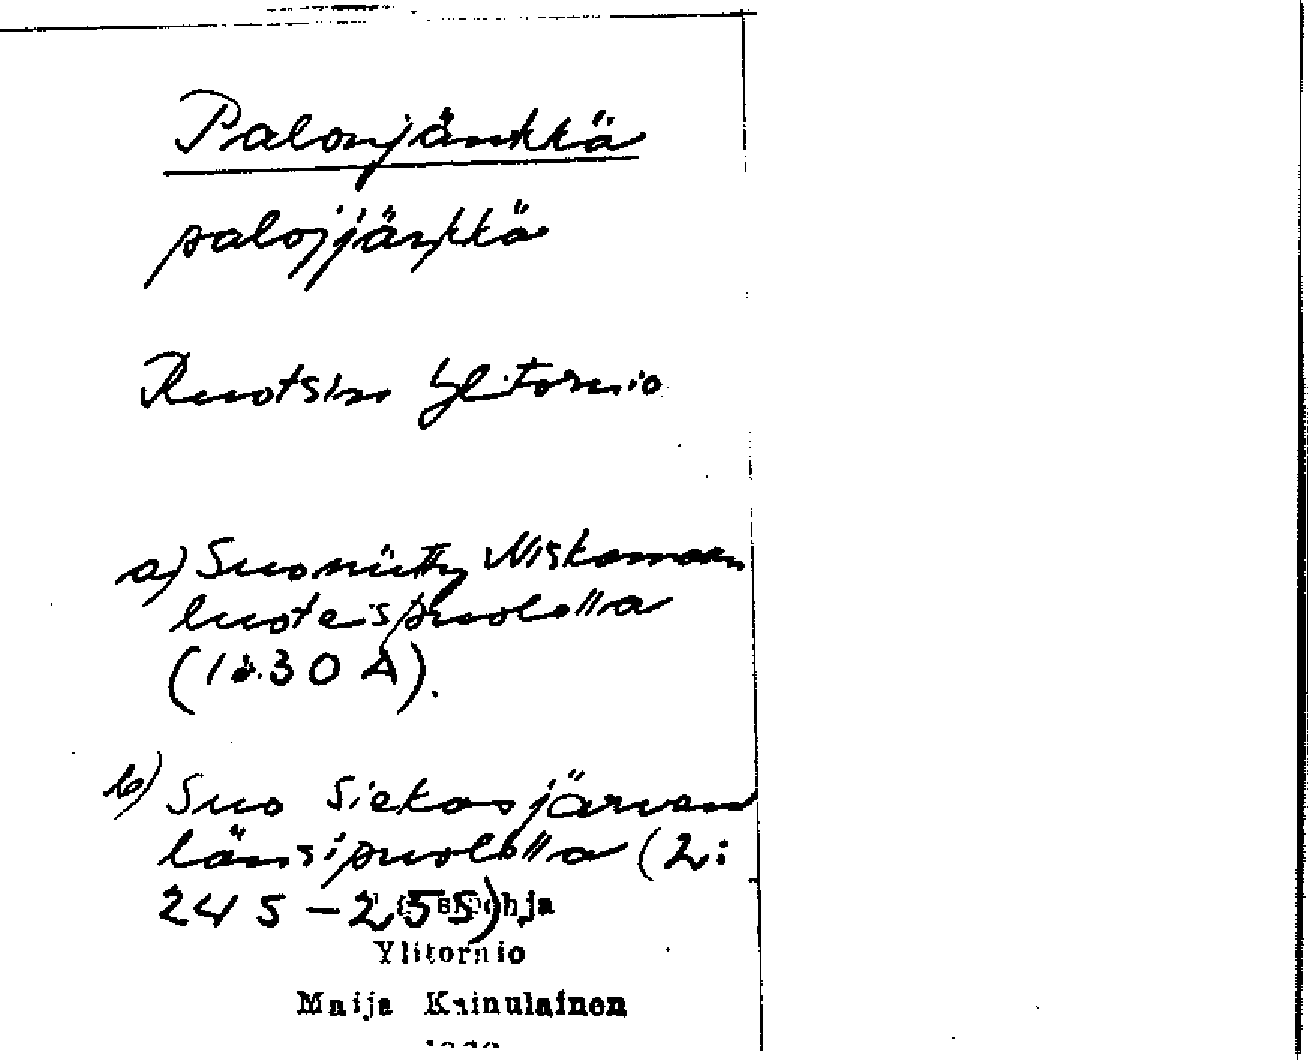 Palonjänkkä
palojjäŋkkä
Ruotsin Ylitornio
a) Suoniitty Niskamaan
luoteispuolella
(1:30 A).
b) Suo Siekasjärven
länsipuolella (2:
245-255).
Ylitornio
Maija Kainulainen